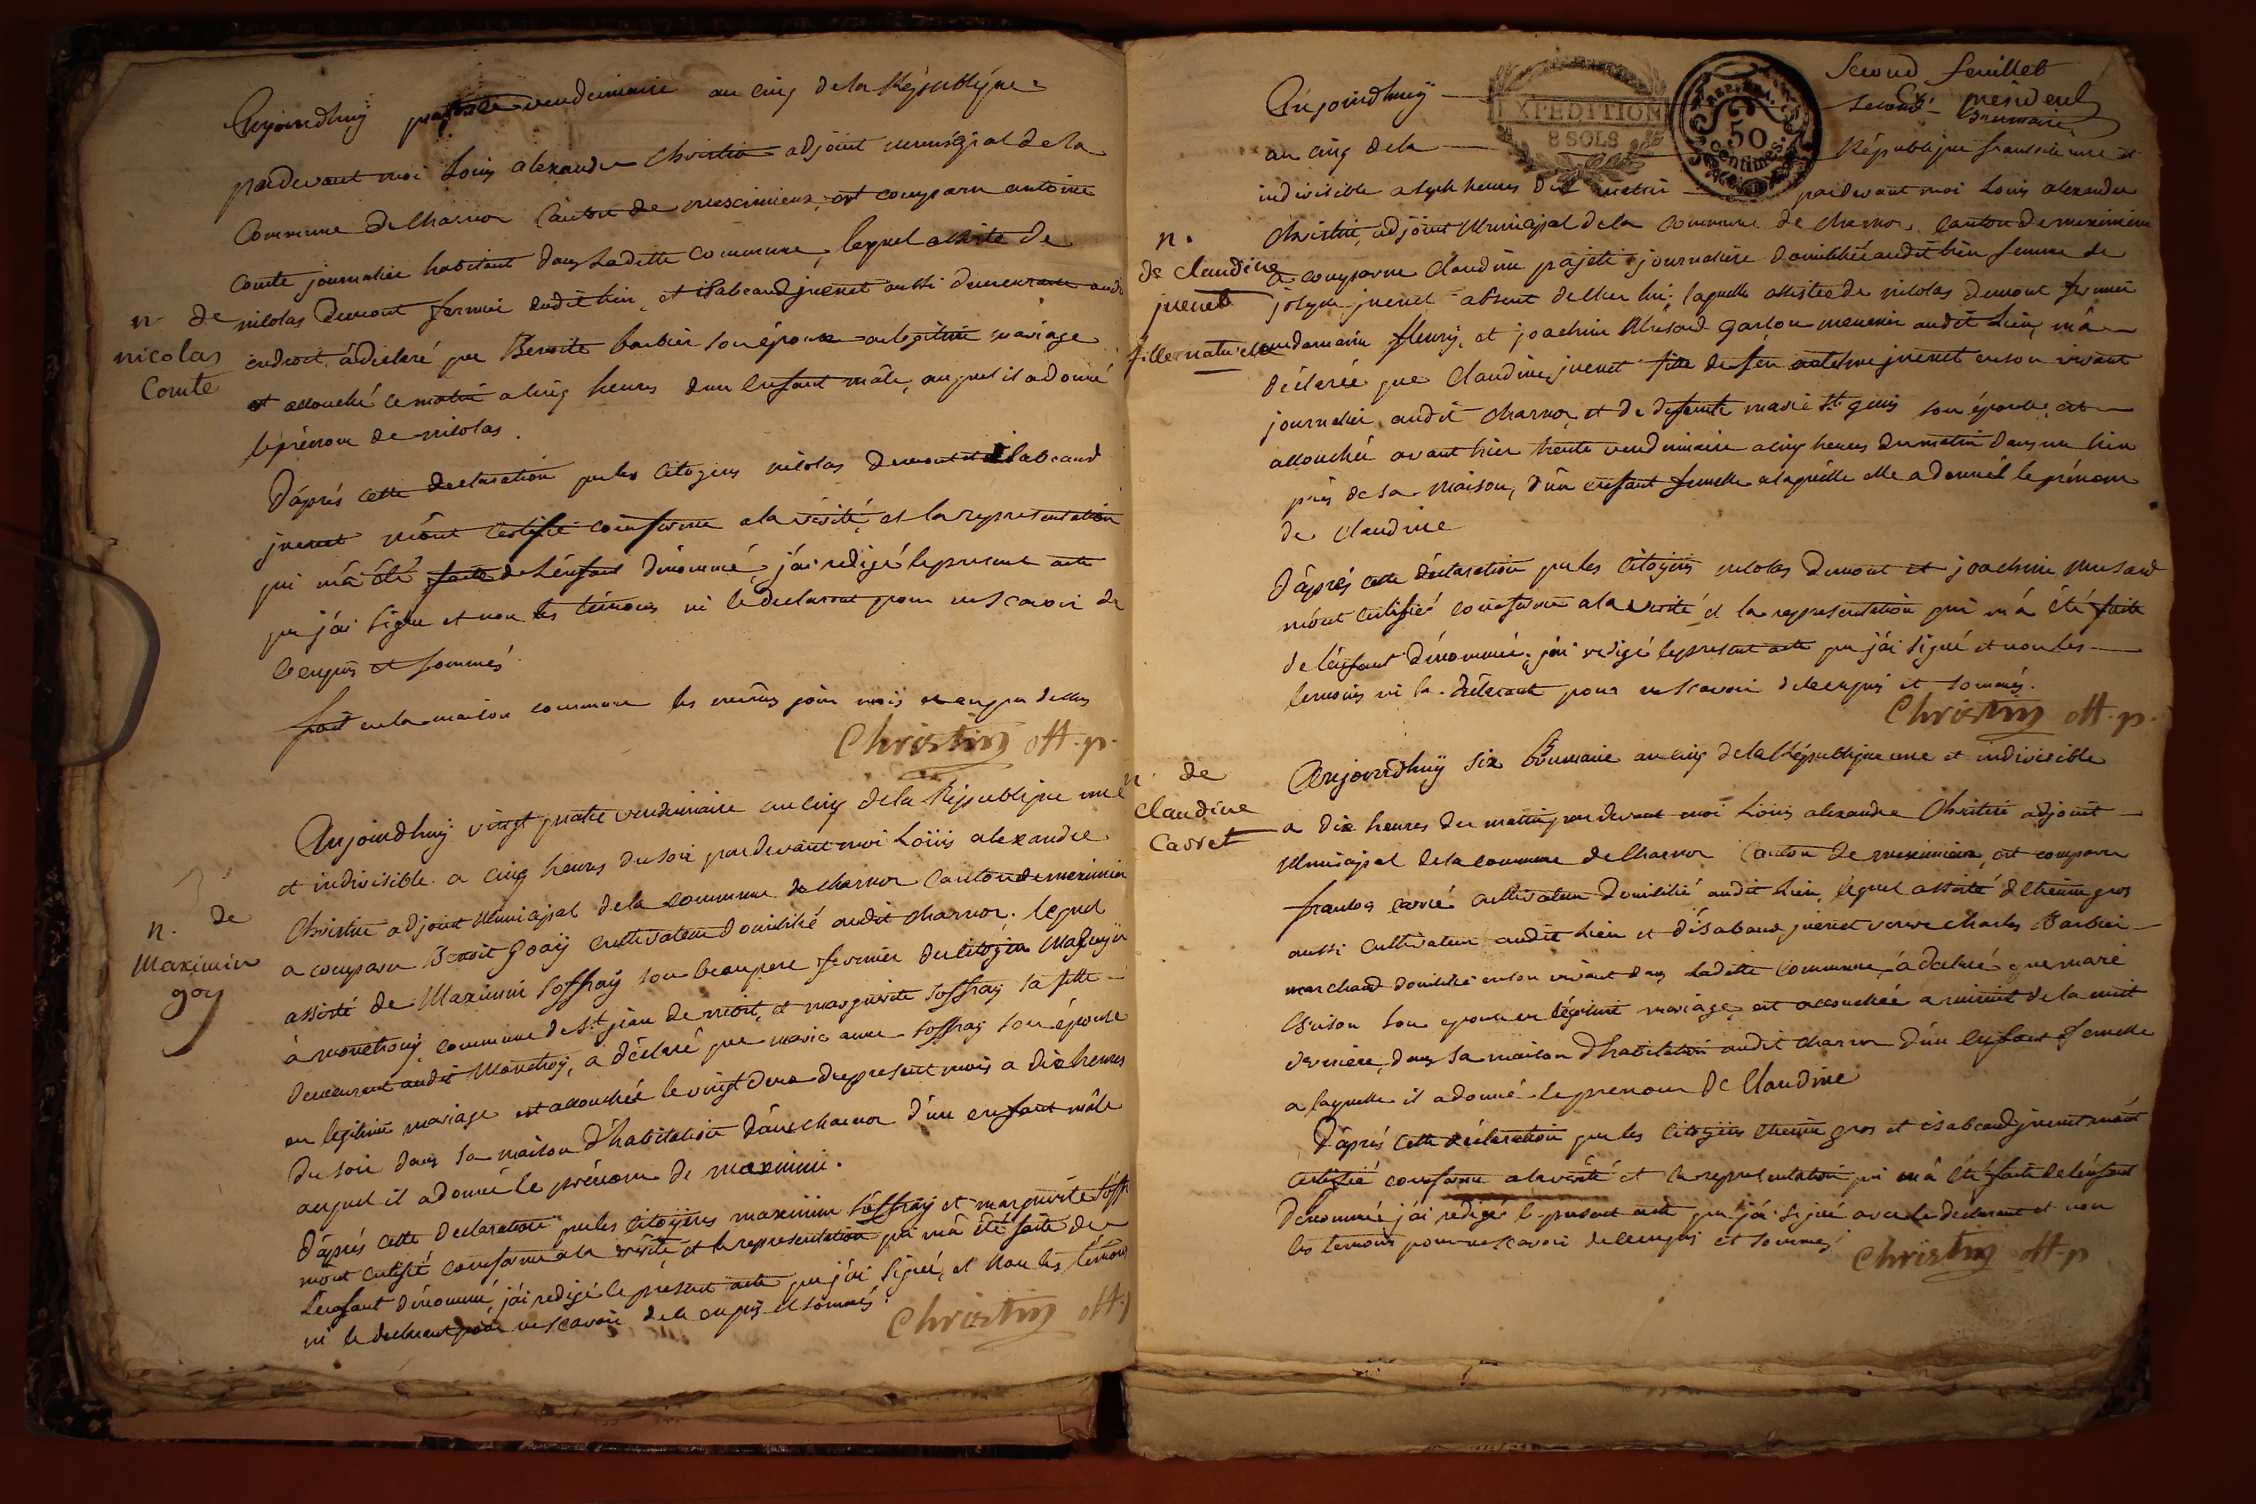 Aujourdhuÿ quatorze vendemiaire an cinq de la République
pardevant moi Loüis alexandre Christin adjoint municipal de la
Commune de Charnoz Canton de meximieux, est comparu antoine
Comte journalier habitant dans Ladette Commune, lequel assisté de
n. de
nicolas
Comte
nicolas Dumont fermier audit lieu, et isabeaud juenet aussi demeurant audit
endroit, à déclaré que Benoite barbier son épouse en legitime mariage
est accouché ce matin a cinq heures d'un Enfant mâle, auquel il a donné
le prénom de nicolas.
D'après cette declaration que les Citoyens nicolas Dumont et isabeaud
juenet m'ont Certifié conforme a la vérité, et la representation
qui m'à été faite de L'énfant dénommé, j'ai redigé le present acte
que j'ai signé et non les témoins ni le declarant pour ne scavoir de
ce enquis et sommés.
fait en la maison commune les mêmes jour mois et an que dessus
Christin off. p.
Aujourdhuÿ vingt quatre vendemiaire an cinq de la République une
et indivisible a cinq heures du soir pardevant moi Loüis alexandre
Christin adjoint Municipal de la Commune de charnoz Canton de meximieux
n. de
Maximin
goy
a comparu Benoit Goaÿ Cultivateur domicilié audit charnoz. lequel
assisté de Maximin Soffray son beaupere fermier du Citoyen
à monthoÿ, commune de St jean de niost, et marguerite soffray sa fille
demeurant audit Monthoÿ, a déclaré que marie anne soffray son épouse
en legitime mariage est accouchée le vingt deux du present mois a dix heures
du soir dans sa maison d'habitation dans charnoz d'un enfant mâle
auquel il a donné le prénom de maximin.
D'après cette declaration que les Citoyens maximin soffray et marguerite soffr
m'ont certifié conforme a la vérité et la representation qui m'à été faite de
L'enfant dénommé, j'ai redigé le present acte que j'ai signé, et non les témoins
ni le declarant pour ne scavoir de ce enquis et sommés.
Christin off. p
Second feuillet
président
Aujourdhuÿ
EXPEDITION
8 SOLS
REP. FRA.
50
centimes
second Brumaire
an cinq de la République francaise une et
indivisible a sept heures du matin pardevant moi Louis alexandre
Christin, adjoint Municipal de la Commune de charnoz Canton de meximieux
n.
de claudine
juenet
fille naturelle
a comparue Claudine pajeti journaliere domiciliée audit lieu femme de
joseph juenet absent de lieu, laquelle assistée de nicolas dumont fermier
au domaine fleury, et joachim Musard garçon meunier audit Lieu, m'à
déclarée que Claudine juenet fille de feu antoine juenet en son vivant
journalier audit charnoz, et de defunte marie son épouse, est
accouchée avant hier trente vendemiaire a cinq heures du matin dans un lieu
près de sa maison, d'un enfant femelle a laquelle elle a donnée le prénom
de Claudine
D'après cette déclaration que les Citoyens nicolas Dumont et joachim musard
m'ont certifié conforme a la vérité et la representation qui m'à été faite
de l'enfant dénommé, j'ai redigé le present acte que j'ai signé et non les
temoins ni la déclarante pour ne scavoir de ce enquis et sommés.
Christin off. p.
Aujourdhuÿ six Brumaire an cinq de la République une et indivisible
n. de
Claudine
Carret
a dix heures du matin, pardevant moi Louis alexandre Christin adjoint
Municipal de la Commune de Charnoz Canton de meximieux, est comparu
francois carré cultivateur domicilié audit lieu, lequel assisté d'Etienne gros
aussi cultivateur audit lieu et d'isabeaud juenet veuve Charles Barbier
marchand domicilié en son vivant dans Ladette Commune, à declaré que marie
son epouse en légitime mariage, est accouchée a minuit de la nuit
derniere, dans sa maison d'habitation audit charnoz d'un enfant femelle
a laquelle il a donné le prenom de Claudine
D'après cette déclaration que les Citoyens Etienne gros et isabeaud juenet m'ont
certifié conforme a la vérité et la representation qui m'à été faite de l'enfant
dénommé, j'ai redigé le present acte que j'ai signé avec le declarant et non
les temoins pour ne scavoir de ce enquis et sommés
Christin off. p